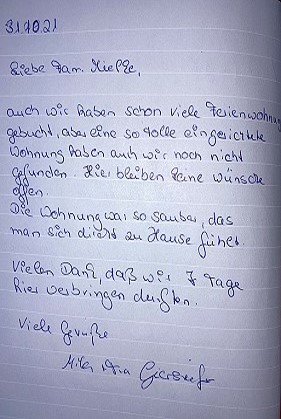 31.7.021
Liebe Fam. Kielke,
auch wir haben schon viele Ferienwohnung
gebucht, aber eine so tolle eingerichtete
Wohnung haben auch wir noch nicht
gefunden. Hier bleiben keine wünsche
offen.
Die Wohnung war so sauber, das
man sich direkt zu Hause fühlt.
Vielen Dank, daß wir 7 Tage
hier verbringen durften.
Viele Grüße